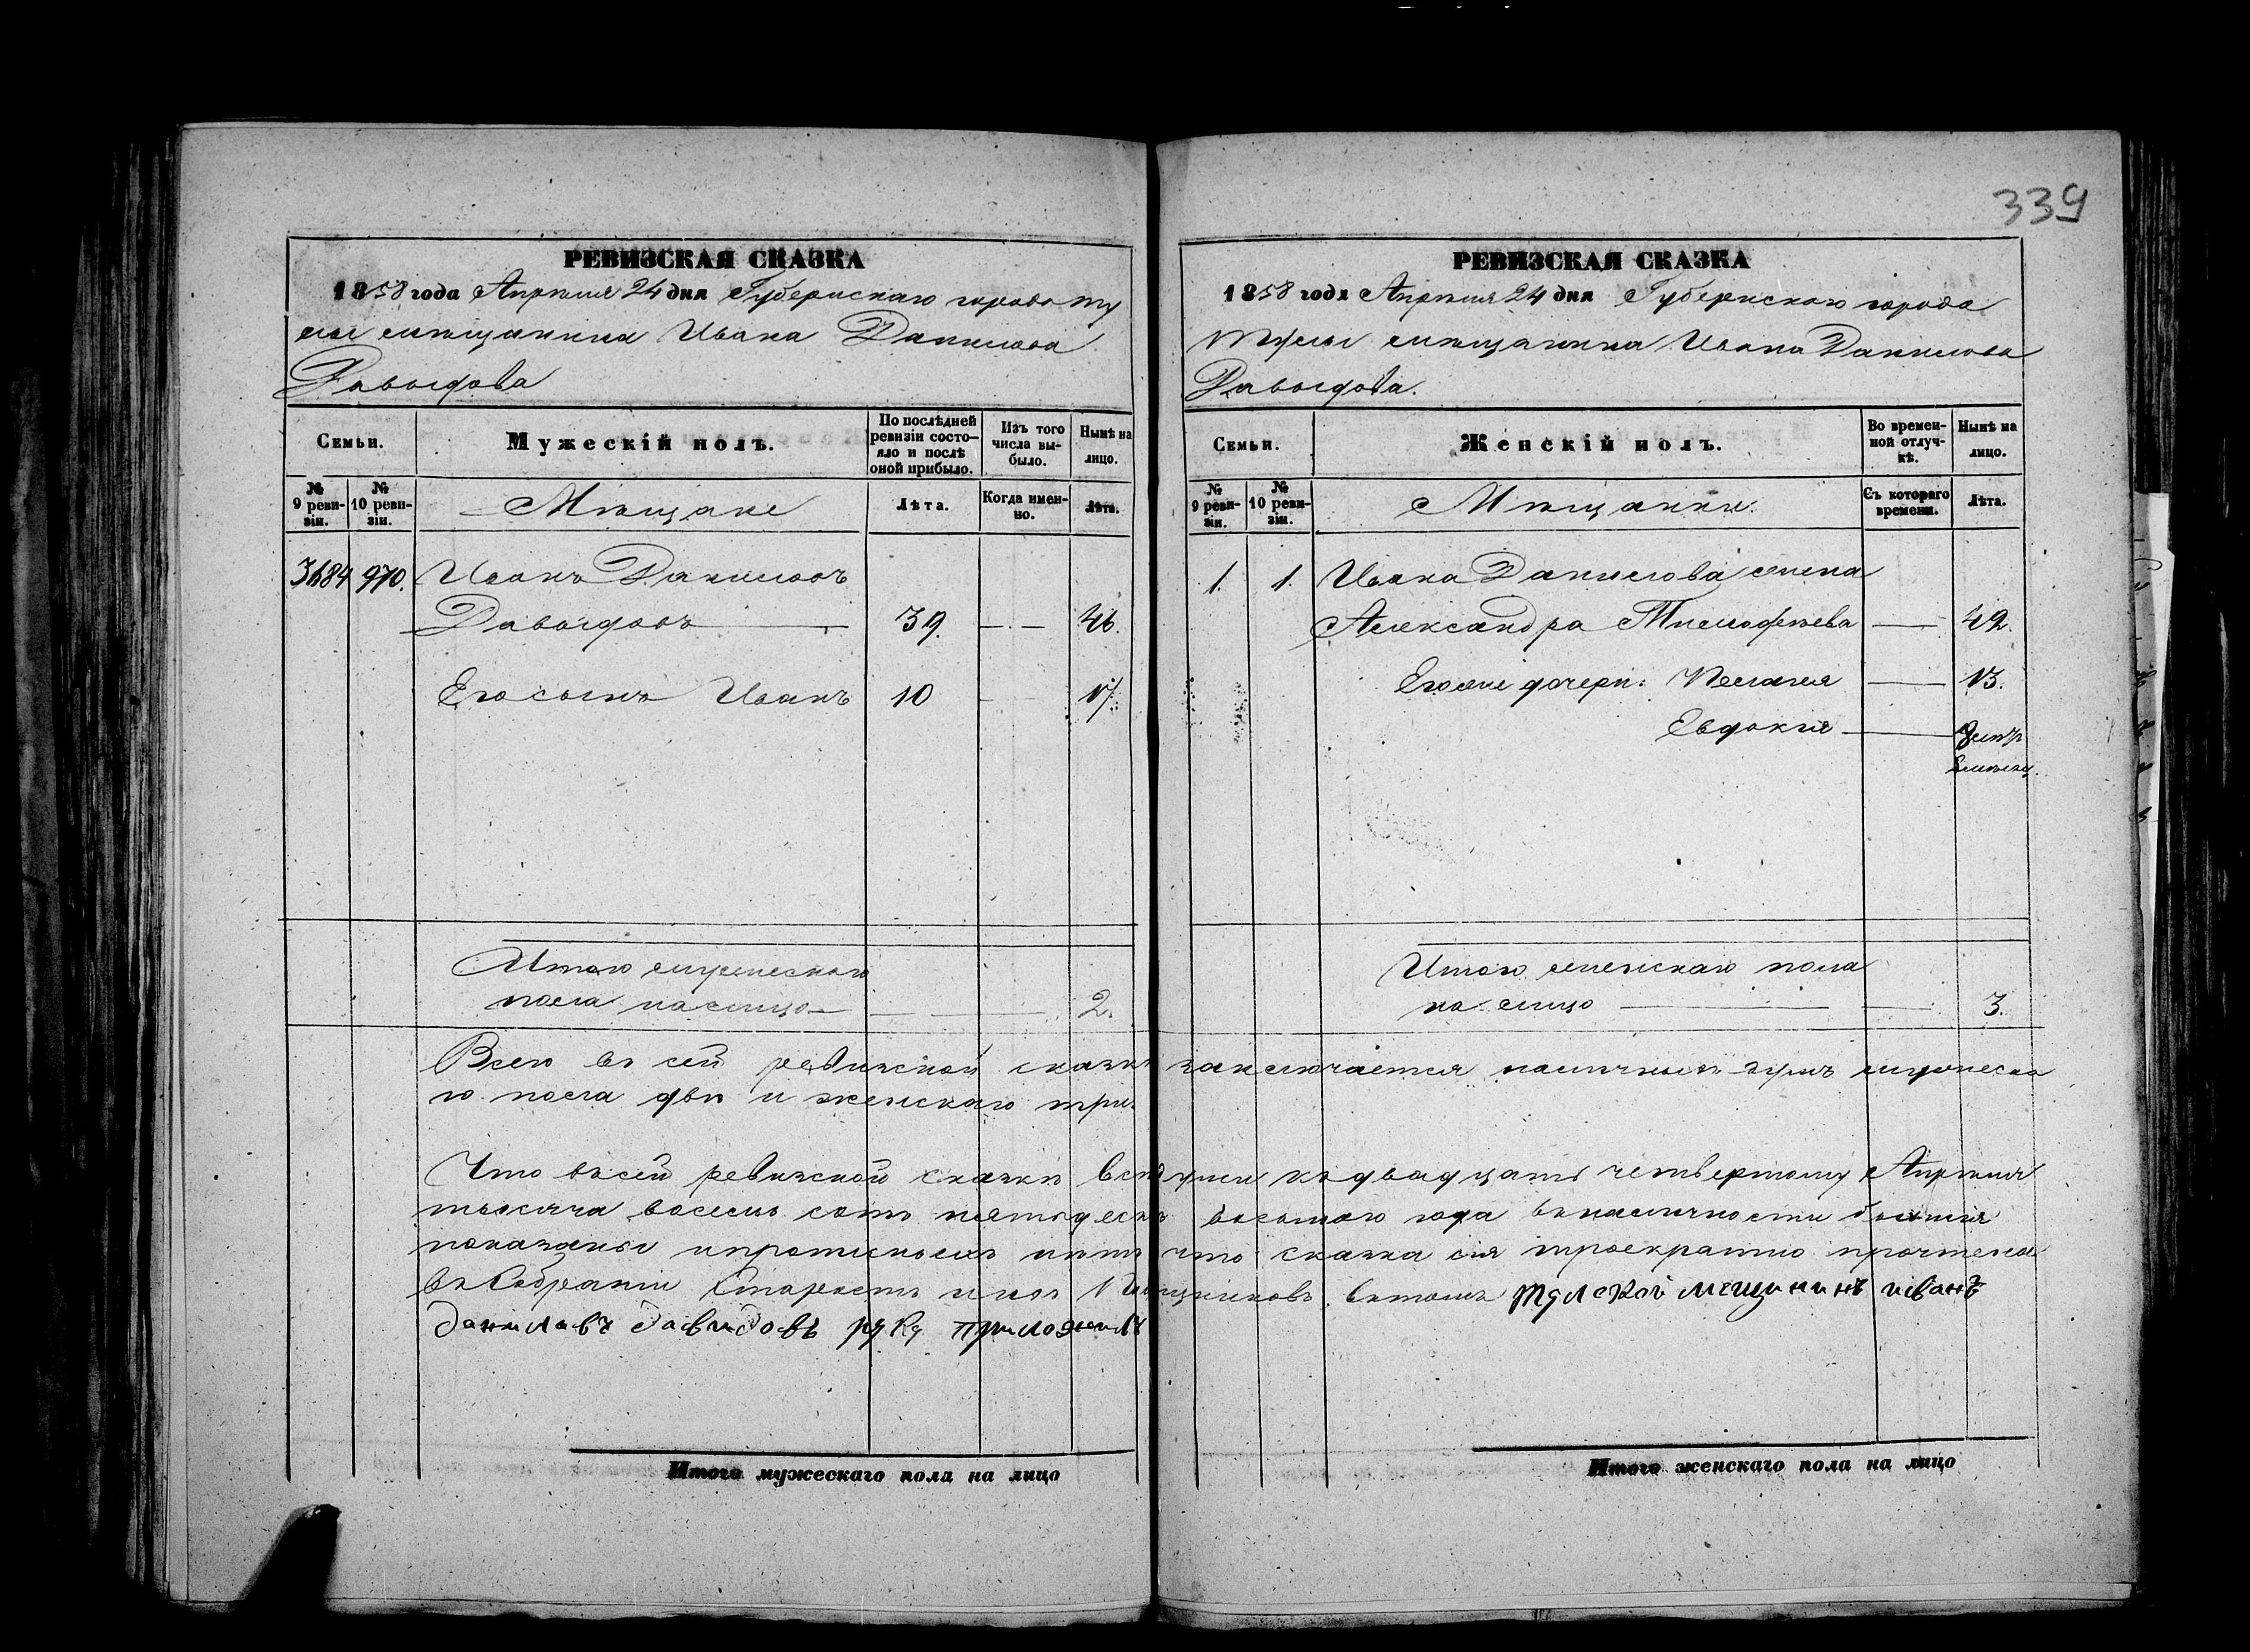 339
РЕВИЗСКАЯ СКАЗКА
1858 года Апрѣля 24 дня Губернскаго города Ту
лы мѣщанина Ивана Данилова
Давыдова
Семьи.
Мужескій полъ.
По послѣдней ревизіи состояло и послѣ оной прибыло.
Изъ того числа выбыло.
Нынѣ на лицо.
№ 9 ревизіи.
№ 10 ревизіи.
Мѣщане
Лѣта.
Когда именно.
Лѣта.
970. Иванъ Даниловъ
Давыдовъ 39. — 46.
Его сынъ Иванъ 10 - 17.
Итого мужескаго
пола на лицо 2.
РЕВИЗСКАЯ СКАЗКА
1858 года Апрѣля 24 дня Губернскаго города
Тулы мѣщанина Ивана Данилова
Давыдова.
Семьи.
Женскій полъ.
Во временной отлучкѣ.
Нынѣ на лицо.
№ 9 ревизіи.
№ 10 ревизіи.
Мѣщанки.
Съ котораго времени.
Лѣта.
1. 1. Ивана Данилова жена
Александра Тимофѣева — 42.
Его же дочери: Пелагея — 13.
Евдокия —
Итого женскаго пола
на лицо 3.
Всего въ сей ревизской сказкѣ заключается наличныхъ душъ мужеска
го пола двѣ и женскаго три
Что въ сей ревизской сказкѣ всѣ души къ двадцать четвертому Апрѣля
тысяча восемь сотъ пятьдесятъ восьмого года въ наличности бывшія
показаны и прописныхъ нѣтъ что сказка сія троекратно прочтена
въ Собраніи Старостъ и въ томъ тулской мещининъ иванъ
данилавъ давидовъ руку приложилъ
Итого мужескаго пола на лицо
Итого женскаго пола на лицо